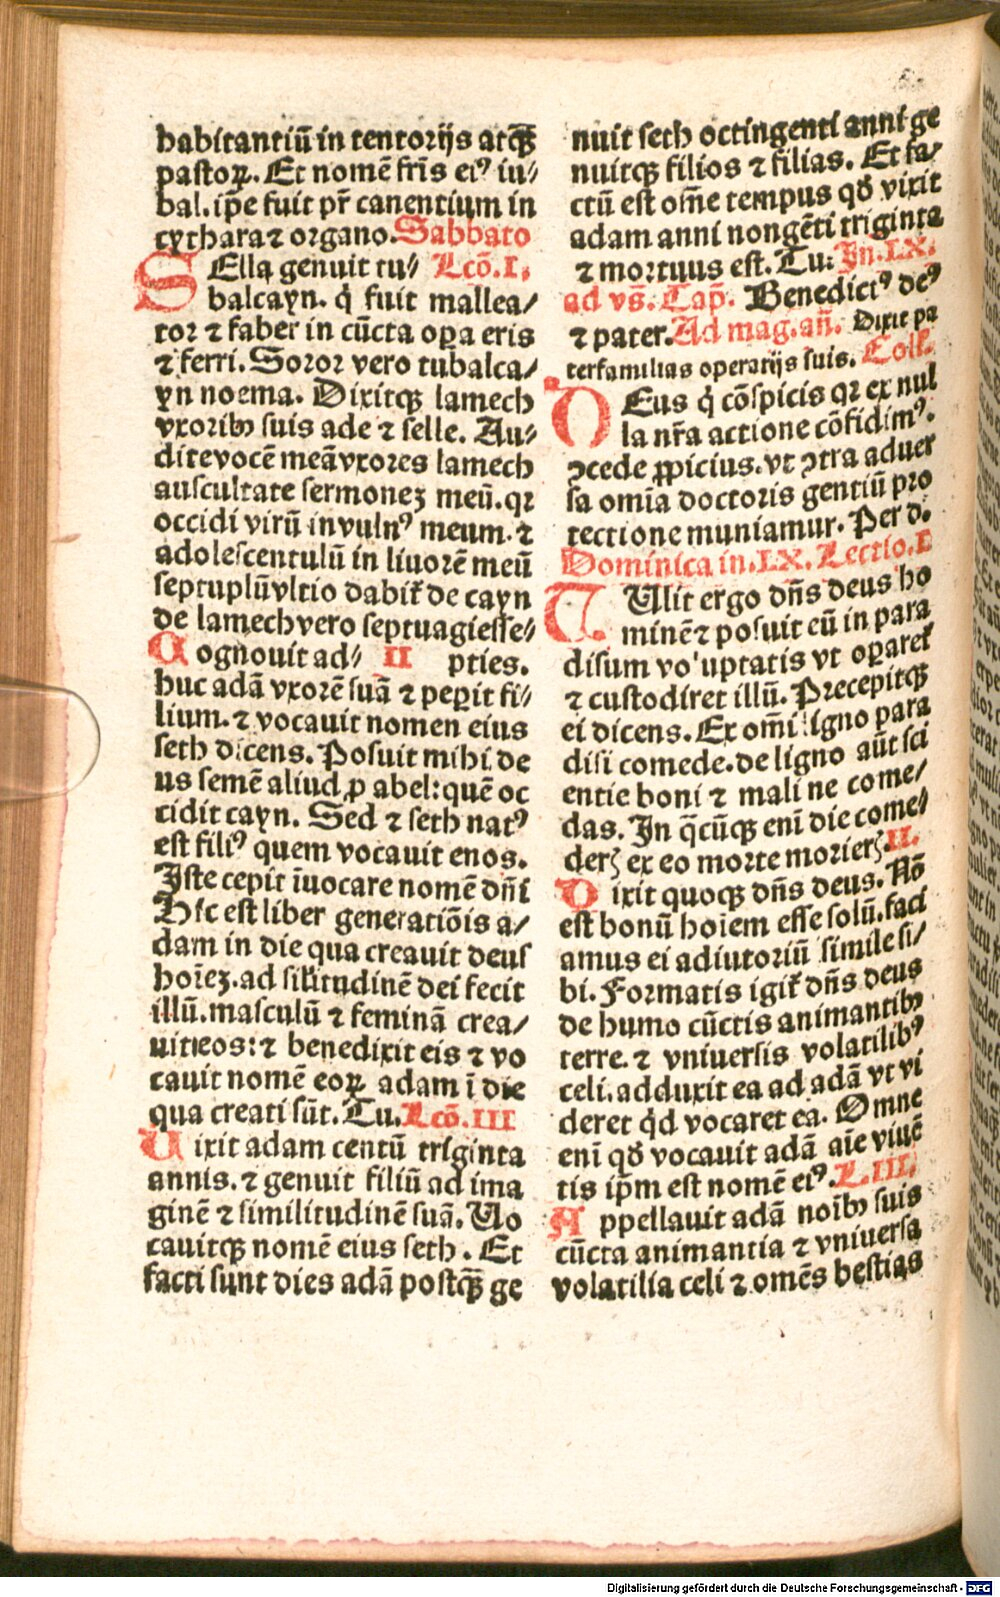 habitantiū in tentorijs atqꝫ
pastoꝝ. Et nomē fr̄is eiꝰ iu⸗
bal. ip̄e fuit pr̄ canentium in
cythara ⁊ organo. Sabbato
SElla genuit tu⸗ Lcō. I.
balcayn. q̇ fuit mallea⸗
tor ⁊ faber in cūcta oꝑa eris
⁊ ferri. Soror vero tubalca⸗
yn noema. Dixitqꝫ lamech
vxoribꝫ suis ade ⁊ selle. Au⸗
dite vocē meā vxores lamech
auscultate sermoneꝫ meū. qꝛ
occidi virū in vulnꝰ meum. ⁊
adolescentulū in liuorē meū
septuplū vltio dabit̃ de cayn
de lamech vero septuagiesse⸗
Cognouit ad⸗ II pties.
huc adā vxorē suā ⁊ peꝑit fi⸗
lium. ⁊ vocauit nomen eius
seth dicens. Posuit mihi de
us semē aliud ꝓ abel: quē oc
cidit cayn. Sed ⁊ seth natꝰ
est filiꝰ quem vocauit enos.
Iste cepit īuocare nomē dn̄i
Hic est liber generatiōis a⸗
dam in die qua creauit deus
hoīeꝫ. ad sil̄itudinē dei fecit
illū. masculū ⁊ feminā crea⸗
uit eos: ⁊ benedixit eis ⁊ vo
cauit nomē eoꝝ adam ī die
qua creati sūt. Tu. Lcō. III
Uixit adam centū triginta
annis. ⁊ genuit filiū ad ima
ginē ⁊ similitudinē suā. Uo
cauitqꝫ nomē eius seth. Et
facti sunt dies adā postqꝫ̄ ge
nuit seth octingenti anni ge
nuitqꝫ filios ⁊ filias. Et fa⸗
ctū est om̄e tempus qđ vixit
adam anni nongēti triginta
⁊ mortuus est. Tu. In. LX.
ad vs̄. Cap̄. Benedictꝰ deꝰ
⁊ pater. Ad mag. an̄. Dixit pa
terfamilias operarijs suis. Coll.
DEus q̇ cōspicis qꝛ ex nul
la nr̄a actione cōfidimꝰ.
ꝯcede ꝓpicius. vt ꝯtra aduer
sa omīa doctoris gentiū pro
tectione muniamur. Per d.
Dominica in. LX. Lectio. I
TUlit ergo dn̄s deus ho
minē ⁊ posuit eū in para
disum voluptatis vt oꝑaret̃
⁊ custodiret illū. Precepitqꝫ
ei dicens. Ex om̄i ligno para
disi comede. de ligno aūt sci
entie boni ⁊ mali ne come⸗
das. In q̄cūqꝫ enī die come⸗
derꝭ ex eo morte morierꝭ. II.
Dixit quoqꝫ dn̄s deus. Nō
est bonū hoīem esse solū. faci
amus ei adiutoriū simile si⸗
bi. Formatis igit̃ dn̄s deus
de humo cūctis animantibꝫ
terre. ⁊ vniuersis volatilibꝰ
celi. adduxit ea ad adā vt vi
deret q̇d vocaret ea. Omne
enī qđ vocauit adā aīe viuē
tis ip̄m est nomē eiꝰ. L. III.
Appellauit adā noībꝫ suis
cūcta animantia ⁊ vniuersa
volatilia celi ⁊ omēs bestias
Digitalisierung gefördert durch die Deutsche Forschungsgemeinschaft - DFG